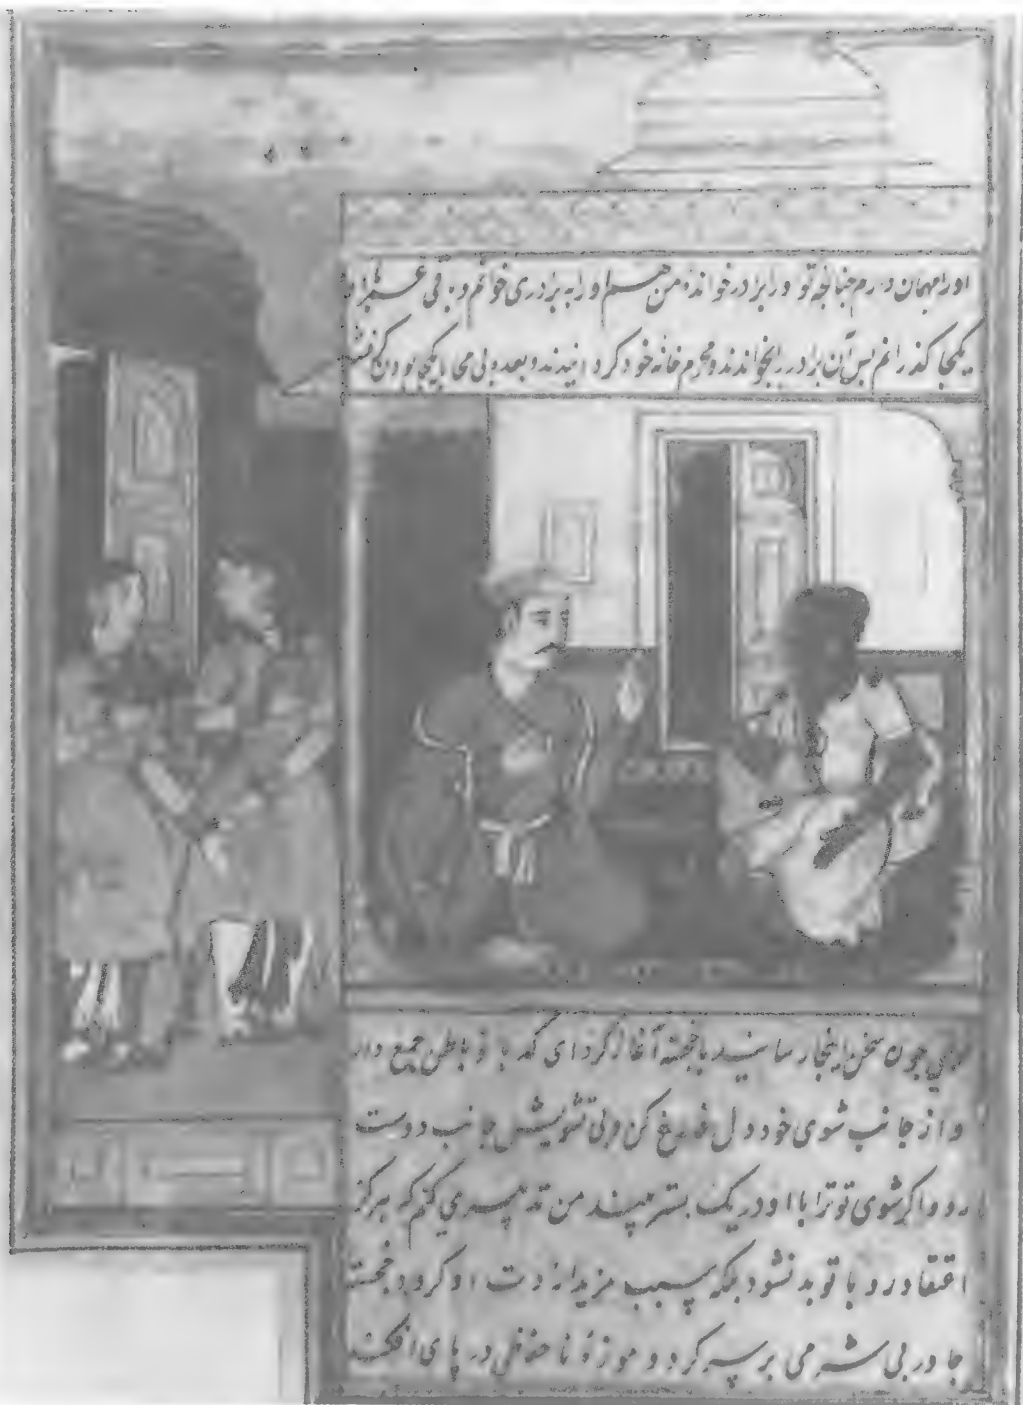 اورا مهمان دارم چنانچه تو اورا برادر خوانده من هم اورا به برادری خوانم و باقی عمر
یکجا گذرانم پس آن برادر را بخواندند و محرم خانه خود گردانیدند و بعده بی
چون سخن اینجا رسانید با خجسته آغاز کرد ای کدبانو باطن جمع دار
و از جانب شوی خود دل فارغ کن و بی تشویش جانب دوست
رو و اگر شوی تو ترا با او در یک بستر بیند من تدبیری کنم که هرگز
اعتقاد او با تو بد نشود بلکه سبب مزید ارادت او گردد خجسته
چادر بی شرمی بر سر کرد و موزۀ نا حفوظی در پای افکند